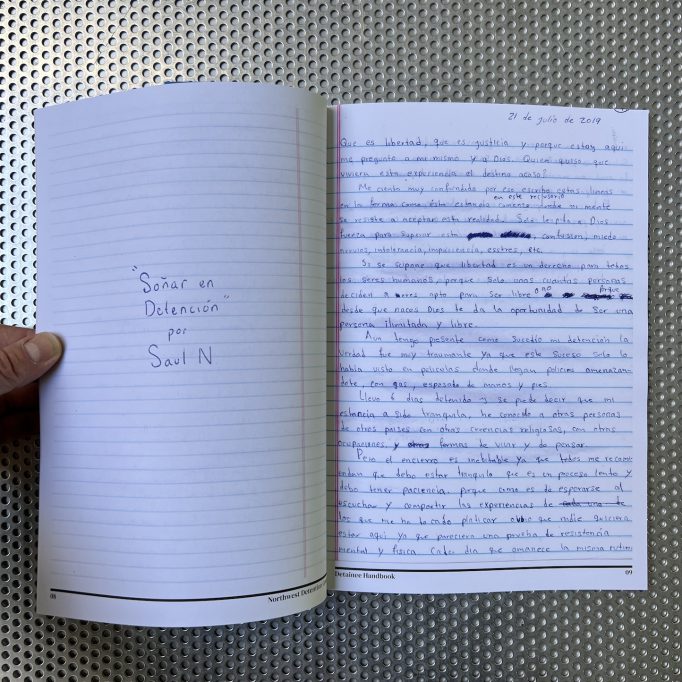 "Soñar en
Detención"
por
Saul N
08
Northwest Detention
21 de julio de 2019
Que es libertad, que es justicia y porque estoy aqui
me pregunto a me mismo y a Dios. Quien quiso que
viviera esta experiencia el destino acaso?
Me ciento muy confundido por eso escribo estas lineas
en este reclusorio
en la forma como ésta estancia comenzo donde mi mente
se resiste a aceptar esta realidad. Solo le pido a Dios
fuerza para superar esta confusion, miedo
nervios, intolerancia, impaciencia, esstres, etc.
Si se supone que libertad es un derecho para todos
los seres humanos, porque solo unas cuantas personas
deciden si eres apto para ser libre o no Porque
desde que naces Dios te da la oportunidad de ser una
persona ilimitada y libre.
Aun tengo presente como sucedio mi detención la
verdad fue muy traumante ya que este suceso solo lo
habia visto en peliculas donde llegan policias amenazan
dote, con gas, esposado de manos y pies.
Llevo 6 dias detenido y se puede decir que mi
estancia a sido tranquila, he conocido a otras personas
de otros paises con otras creencias religiosas, con otras
ocupaciones, y formas de vivir y de pensar.
Pero el encierro es inebitable ya que todos me recomi
endan que debo estar tranquilo que es un proceso lento y
debo tener paciencia, porque como es de esperarse al
escuchar y compartir las experiencias de cada uno de
los que me ha tocado platicar que nadie quisiera
estar aqui ya que pareciera una prueba de resistencia
mental y fisica Cada dia que amanece la misma rutina
Detainee Handbook
09